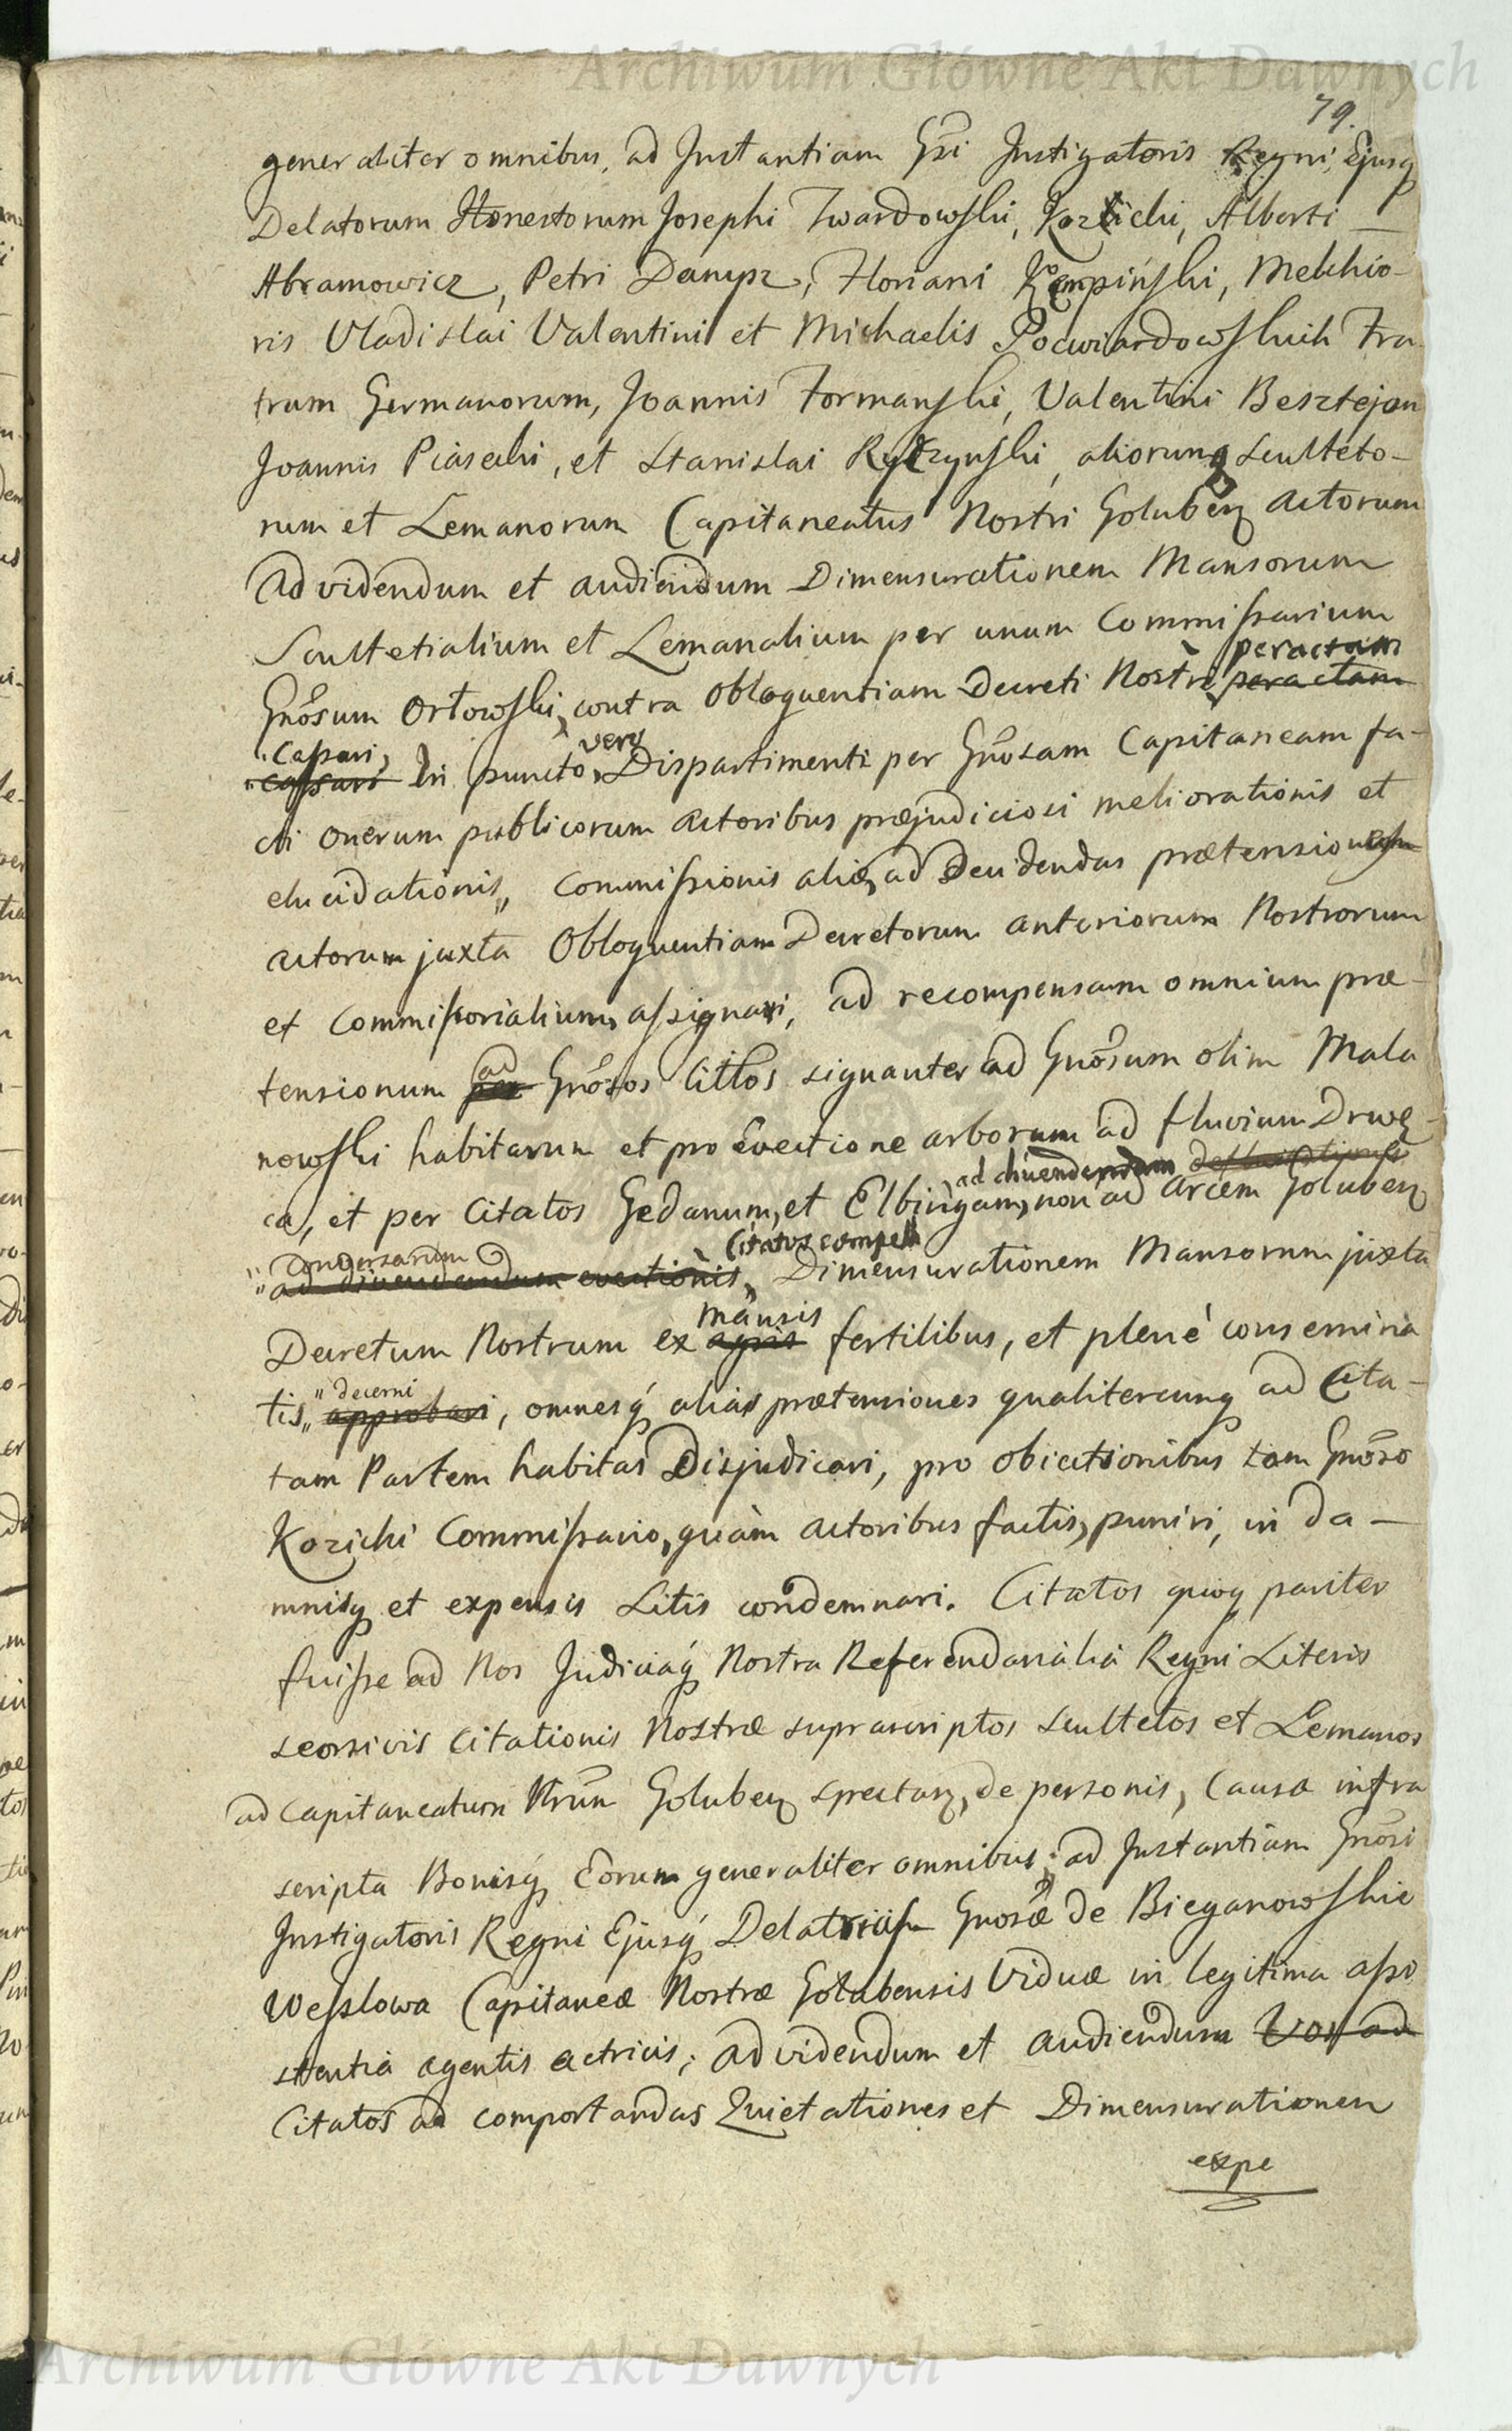 Archiwum Główne Akt Dawnych
79.
generaliter omnibus, ad Instantiam Gsi Instigatoris Regni, Ejusq
Delatorum Honestorum Josephi Twardowski, Kozlicki, Alberti
Abramowicz, Petri Dampz, Floriani Karpiński, Melchio-
ris Vladislai Valentini et Michaelis Pocwiardowskich Fra-
trum Germanorum, Joannis Formanski, Valentini Besztejan
Joannis Piasecki, et Stanislai Rydzynski, aliorumq Sculteto-
rum et Lemanorum Capitaneatus Nostri Golubeꝫ Actorum
Ad videndum et audiendum Dimensurationem Mansorum
Scultetialium et Lemanalium per unum Commissarium
peractam
Gnosum Ortowski, contra Obloquentiam Decreti Nostri peractam
Cassari, very
cassari In puncto Dispartimenti per Gnosam Capitaneam fa-
cti onerum publicorum Actoribus præjudiciosi meliorationis et
elucidationis, Commissionis aliæ, ad Decidendas prætensiones
actorum juxta Obloquentiam Decretorum anteriorum Nostrorum
et Commissorialium, assignari, ad recompensam omnium præ-
ad
tensionum per Gnosos Cittos signanter ad Gnosum olim Mala
nowski habitarum et pro Evectione arborum ad fluvium Drwę-
ad divendendum
ca, et per Citatos Gedanum, et Elbingam, non ad Arcem Golubeꝫ
Citatos compelli
ad divendendum evectionis, Dimensurationem Mansorum juxta
mansis
Decretum Nostrum ex agris fertilibus, et plenè consemina
decerni
tis, approbari, omnesq́ alias prætensiones qualitercunq ad Cita-
tam Partem habitas Disjudicari, pro obiectionibus tam Gnoso
Kozicki Commissario, quàm actoribus factis, puniri, in da-
mnisq et expensis Litis condemnari. Citatos quoq pariter
fuisse ad Nos Judiciaq́ Nostra Referendarialia Regni Literis
seorsivis Citationis Nostræ suprascriptos Scultetos et Lemanos
ad Capitaneatum Nrum Golubeꝫ spectanꝫ, de personis, Causa infra
scripta Bonisq́ Eorum generaliter omnibus, ad Instantiam Gnosi
Instigatoris Regni Ejusq́ Delatricis Gnosæ de Bieganowskie
Wesslowa Capitaneæ Nostræ Golubensis Viduæ in legitima assi
stentia agentis actricis; ad videndum et audiendum Vos ad
Citatos ad comportandas Quietationes et Dimensurationem
expe
Archiwum Główne Akt Dawnych